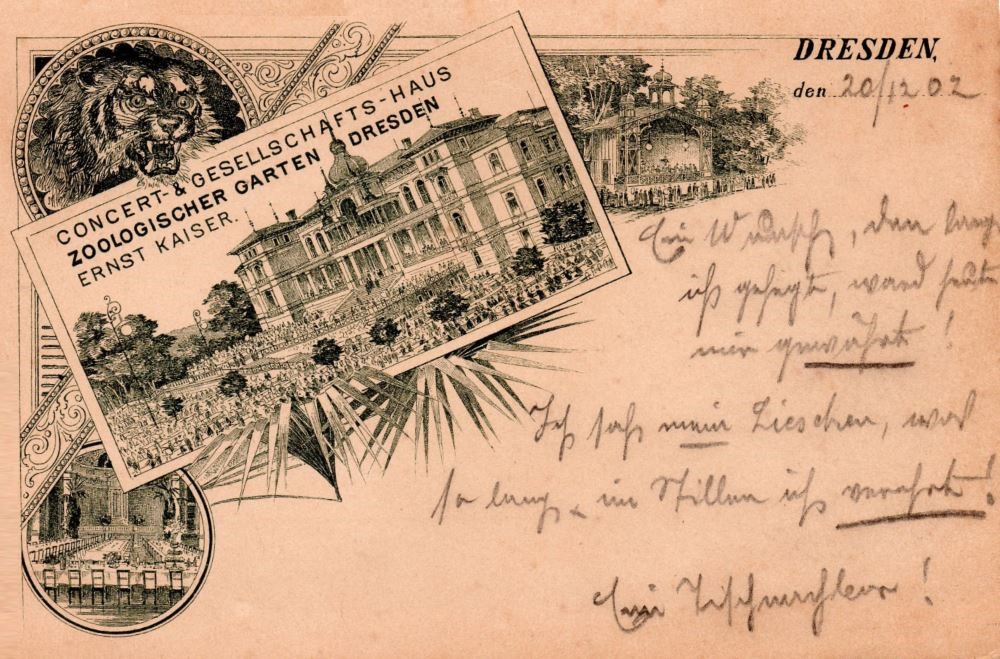 CONCERT- & GESELLSCHAFTS-HAUS
ZOOLOGISCHER GARTEN DRESDEN
ERNST KAISER.
DRESDEN,
den 20/12 02
Ein Wunsch, den lange
ich gehegt, ward heute
mir gewährt!
Ich sah mein Lieschen, was
so lang im Stillen ich verehrt!
Ein Tischnachbar!